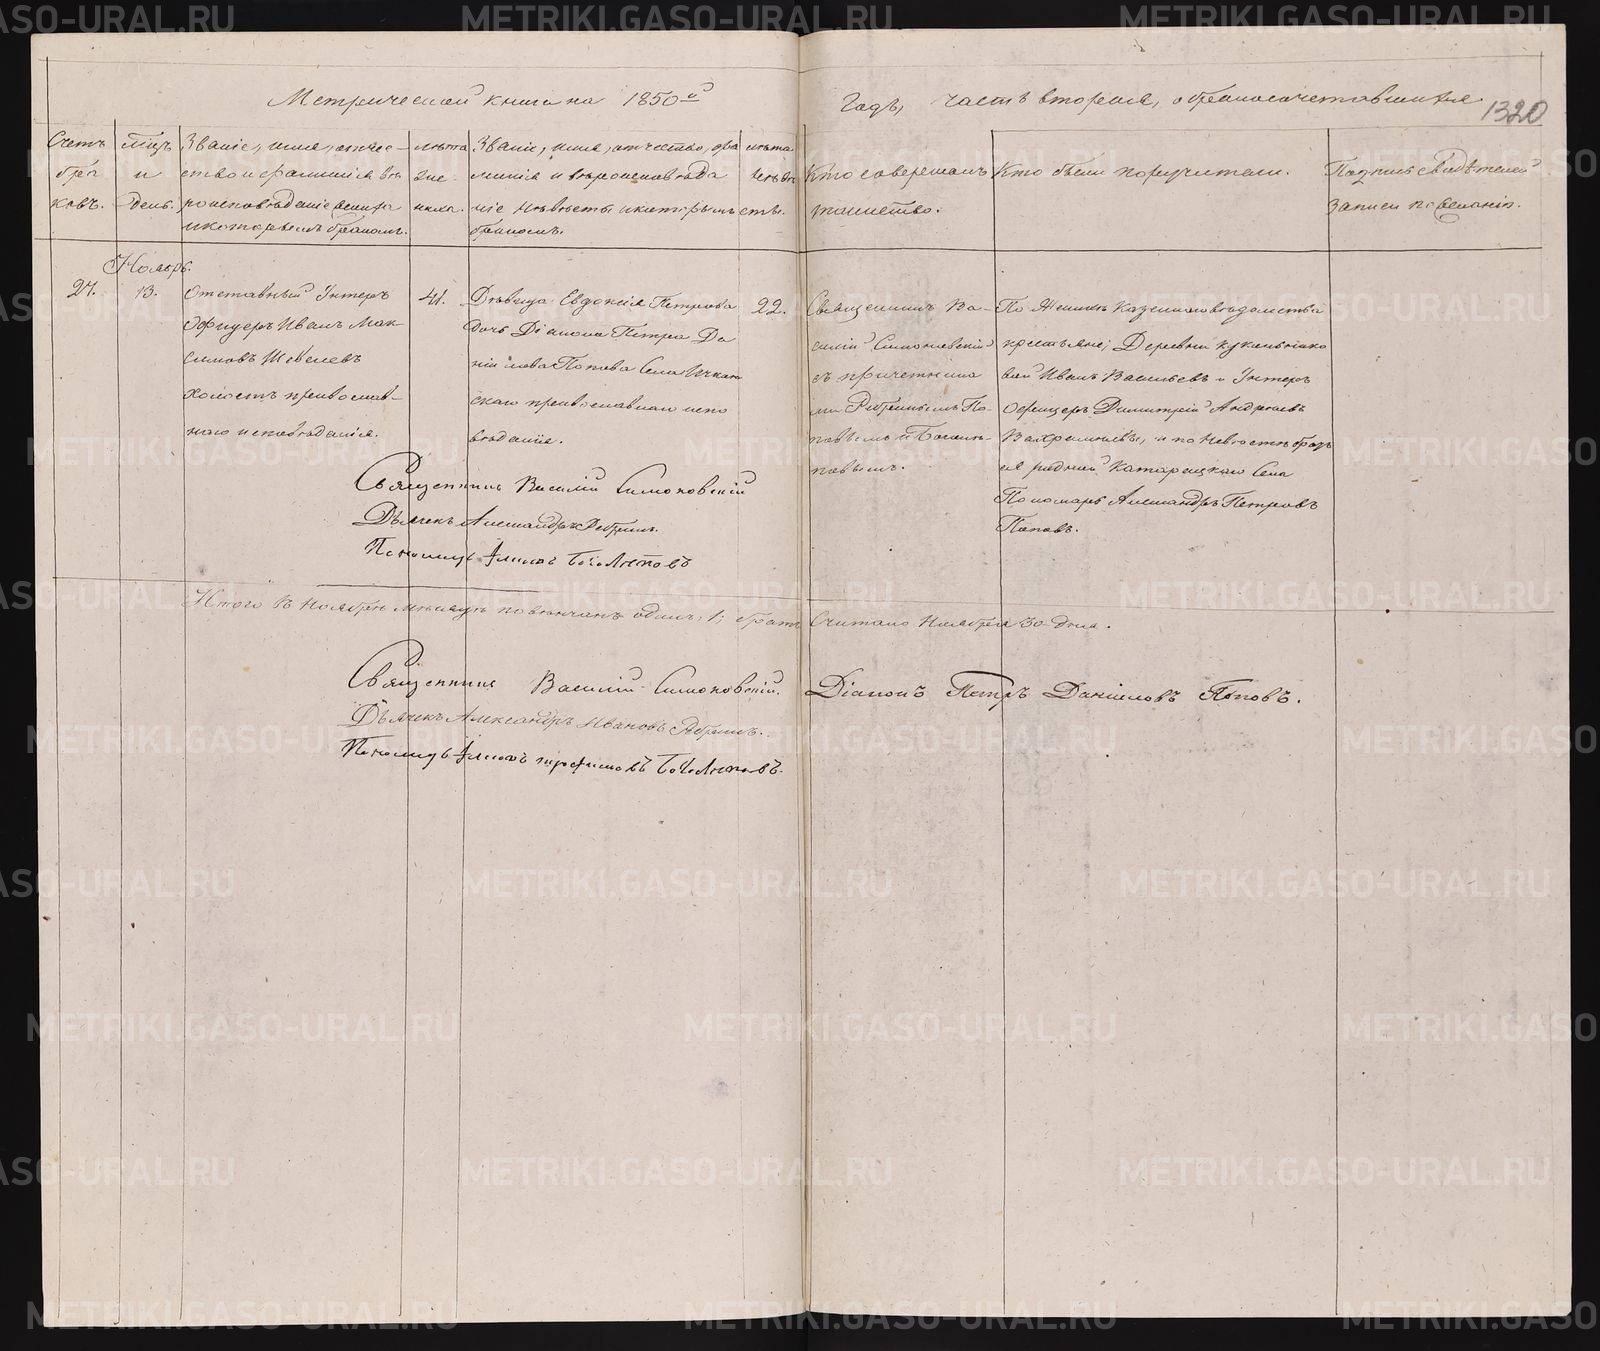 Метрической книги на 1850й годъ, часть вторая, о бракосочетавшихся
1320
Счетъ браковъ.
Мцъ и день.
Званіе, имя, отчество и фамилія
вѣроисповѣданіе жениха
и которымъ бракомъ.
лѣта жениха.
Званіе, имя, отчество, фамилія и вѣроисповѣданіе невѣсты и которымъ бракомъ.
лѣта невѣсты.
Кто совершалъ
таинство.
Кто были поручители.
Подпись свидѣтелей
записи по желанію.
Ноябрь.
27.
13.
Отставный Унтеръ
Офицеръ Иванъ Мак-
симовъ Шевелевъ
холостъ православ-
наго исповѣданія.
41.
Дѣвица Евдокія Петрова
дочь Діакона Петра Да
ніилова Попова Села
православнаго испо
вѣданіе.
22.
Священникъ Ва-
силій Симоновскій
съ причетника
ми Ребринымъ По-
и Боголѣ-
повымъ.
По Женихѣ Казеннаго вѣдомства
крестьяне; Деревни
Иванъ Васильевъ и Унтеръ
Офицеръ Димитрій Андреевъ
и по Невѣстѣ братъ
ея родный Катарацкаго Села
Пономарь Александръ Петровъ
Поповъ.
Священникъ Василій Симоновскій
Дьячекъ Александръ Ребринъ.
Пономарь Боголѣповъ
Итого въ Ноябрѣ мѣсяцѣ повѣнчанъ одинъ, 1; бракъ Считано Ноября 30 дня.
Священникъ Василій Симоновскій.
Діаконъ Петръ Даніиловъ Поповъ.
Дьячекъ Александръ Ивановъ Ребринъ.
Пономарь Трофимовъ Боголѣповъ.
METRIKI.GASO-URAL.RU